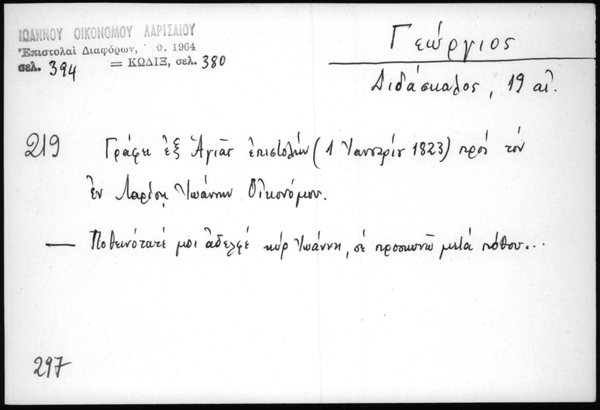 ΙΩΑΝΝΟΥ ΟΙΚΟΝΟΜΟΥ ΛΑΡΙΣΑΙΟΥ
Ἐπιστολαὶ Διαφόρων, 1964
σελ. 394 = ΚΩΔΙΞ, σελ. 380
Γεώργιος
Διδάσκαλος, 19 αἰ.
219 Γράφει ἐξ Ἁγιᾶς ἐπιστολήν (1 Ἰανουαρίου 1823) πρός τόν
ἐν Λαρίσῃ Ἰωάννην Οἰκονόμου.
— Ποθεινότατέ μοι ἀδελφέ κύρ Ἰωάννη, σέ προσκυνῶ μετά πόθου...
297